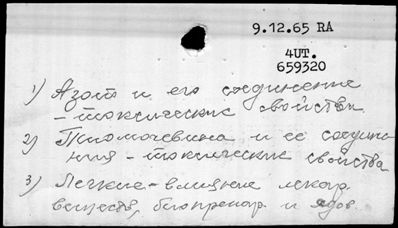 9.12.65 RA
4UT.
659320
1) Азот и его соединение
- токсические свойства
2) Тиомочевина и ее соедине
ния - токсические свойства
3) Легкие - влияние лекар.
веществ, биопрепар. и ядов.